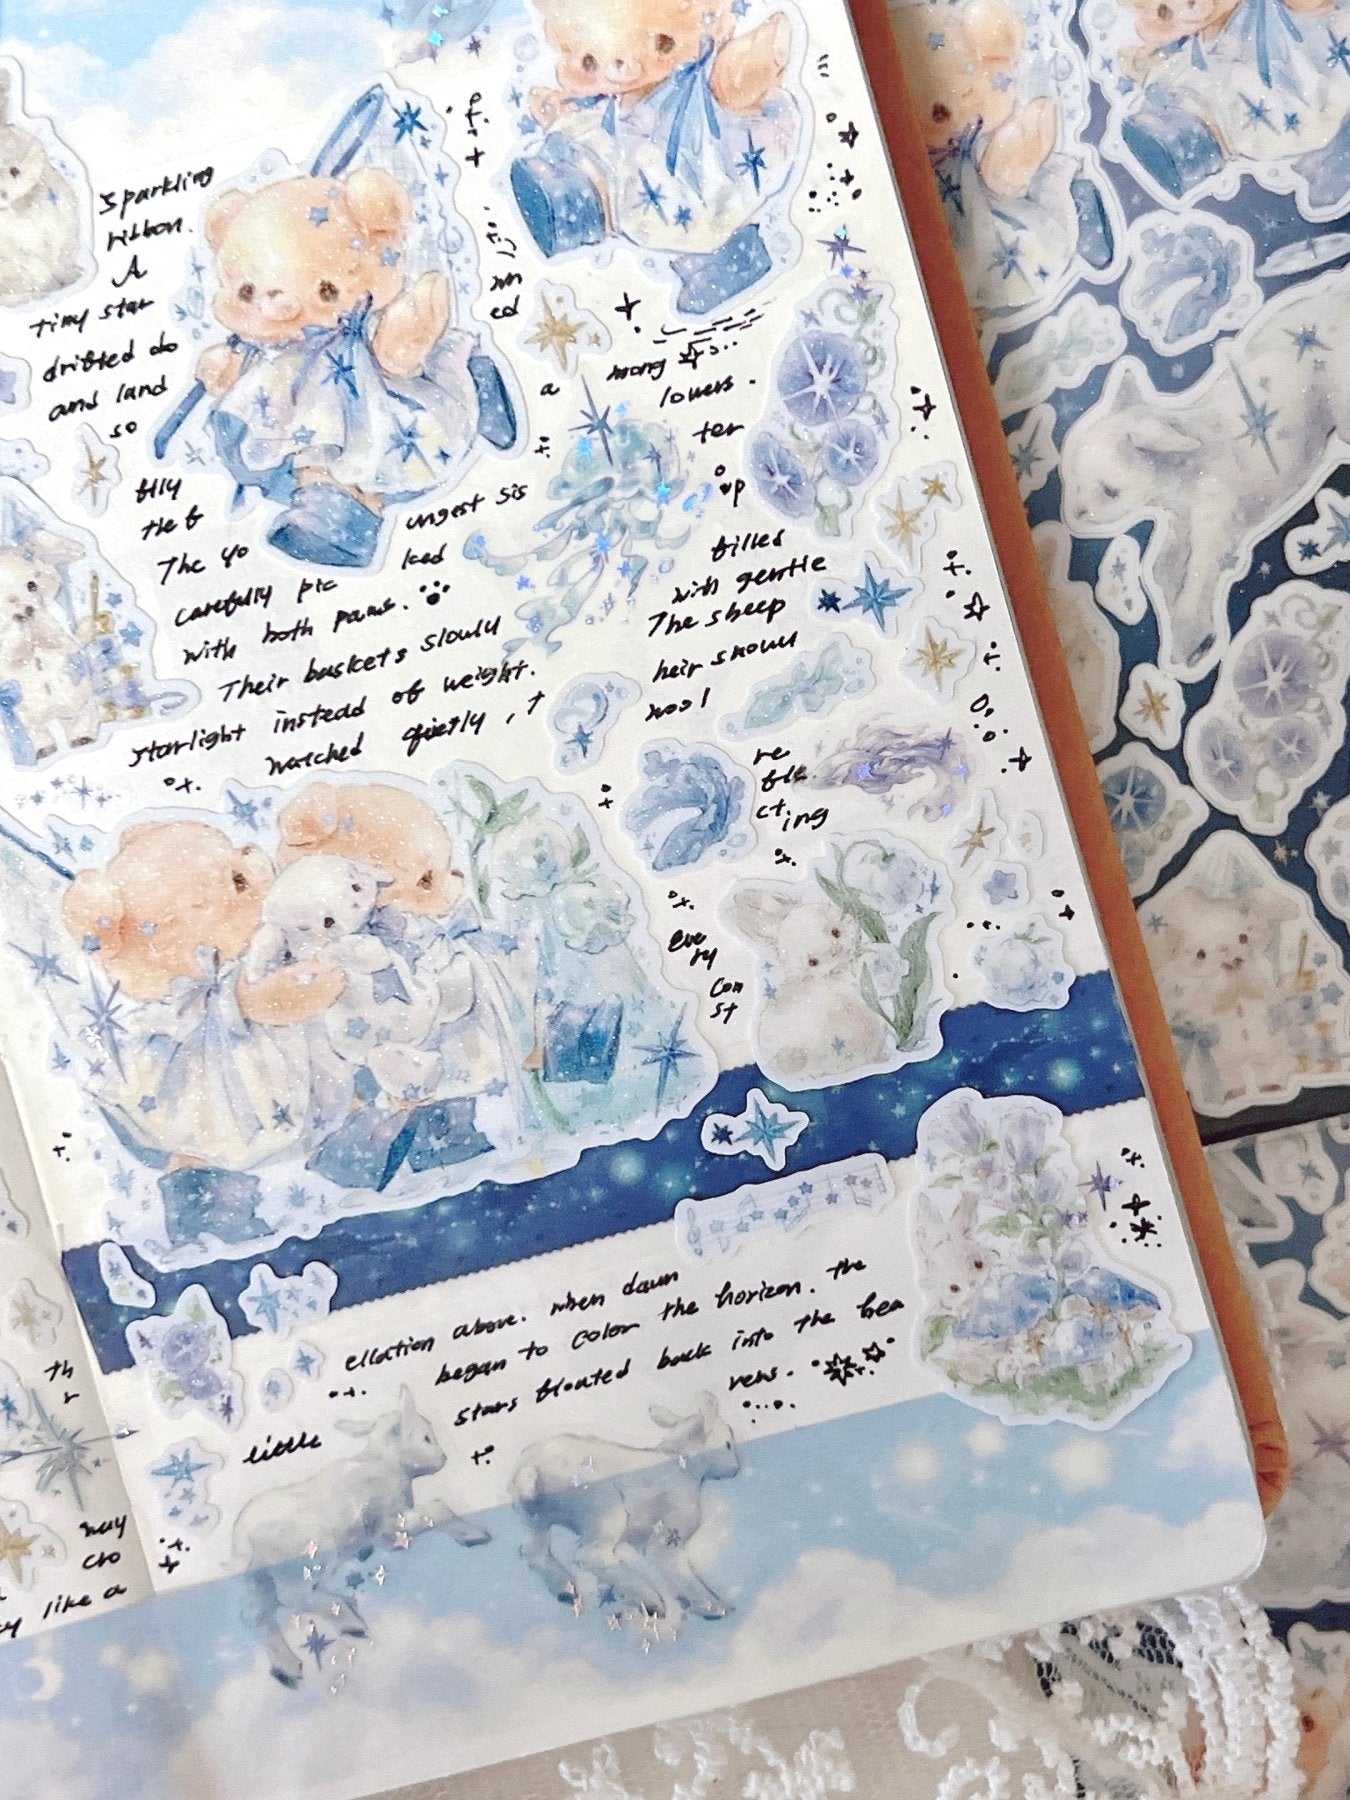 Sparkling
ribbon.
A
tiny star
drifted do wn
and land ed
so a mong
ftly lowers.
the f ter
The yo ungest sis up
carefully pic ked filled
with both paws. with gentle
Their baskets slowly The sheep
starlight instead of weight. heir snowy
watched quietly, t wool
re
fle
cting
Eve
ry
Con
st
ellation above. when dawn
began to color the horizon. the
little stars floated back into the hea
vens.
th
r
way
cro
like a